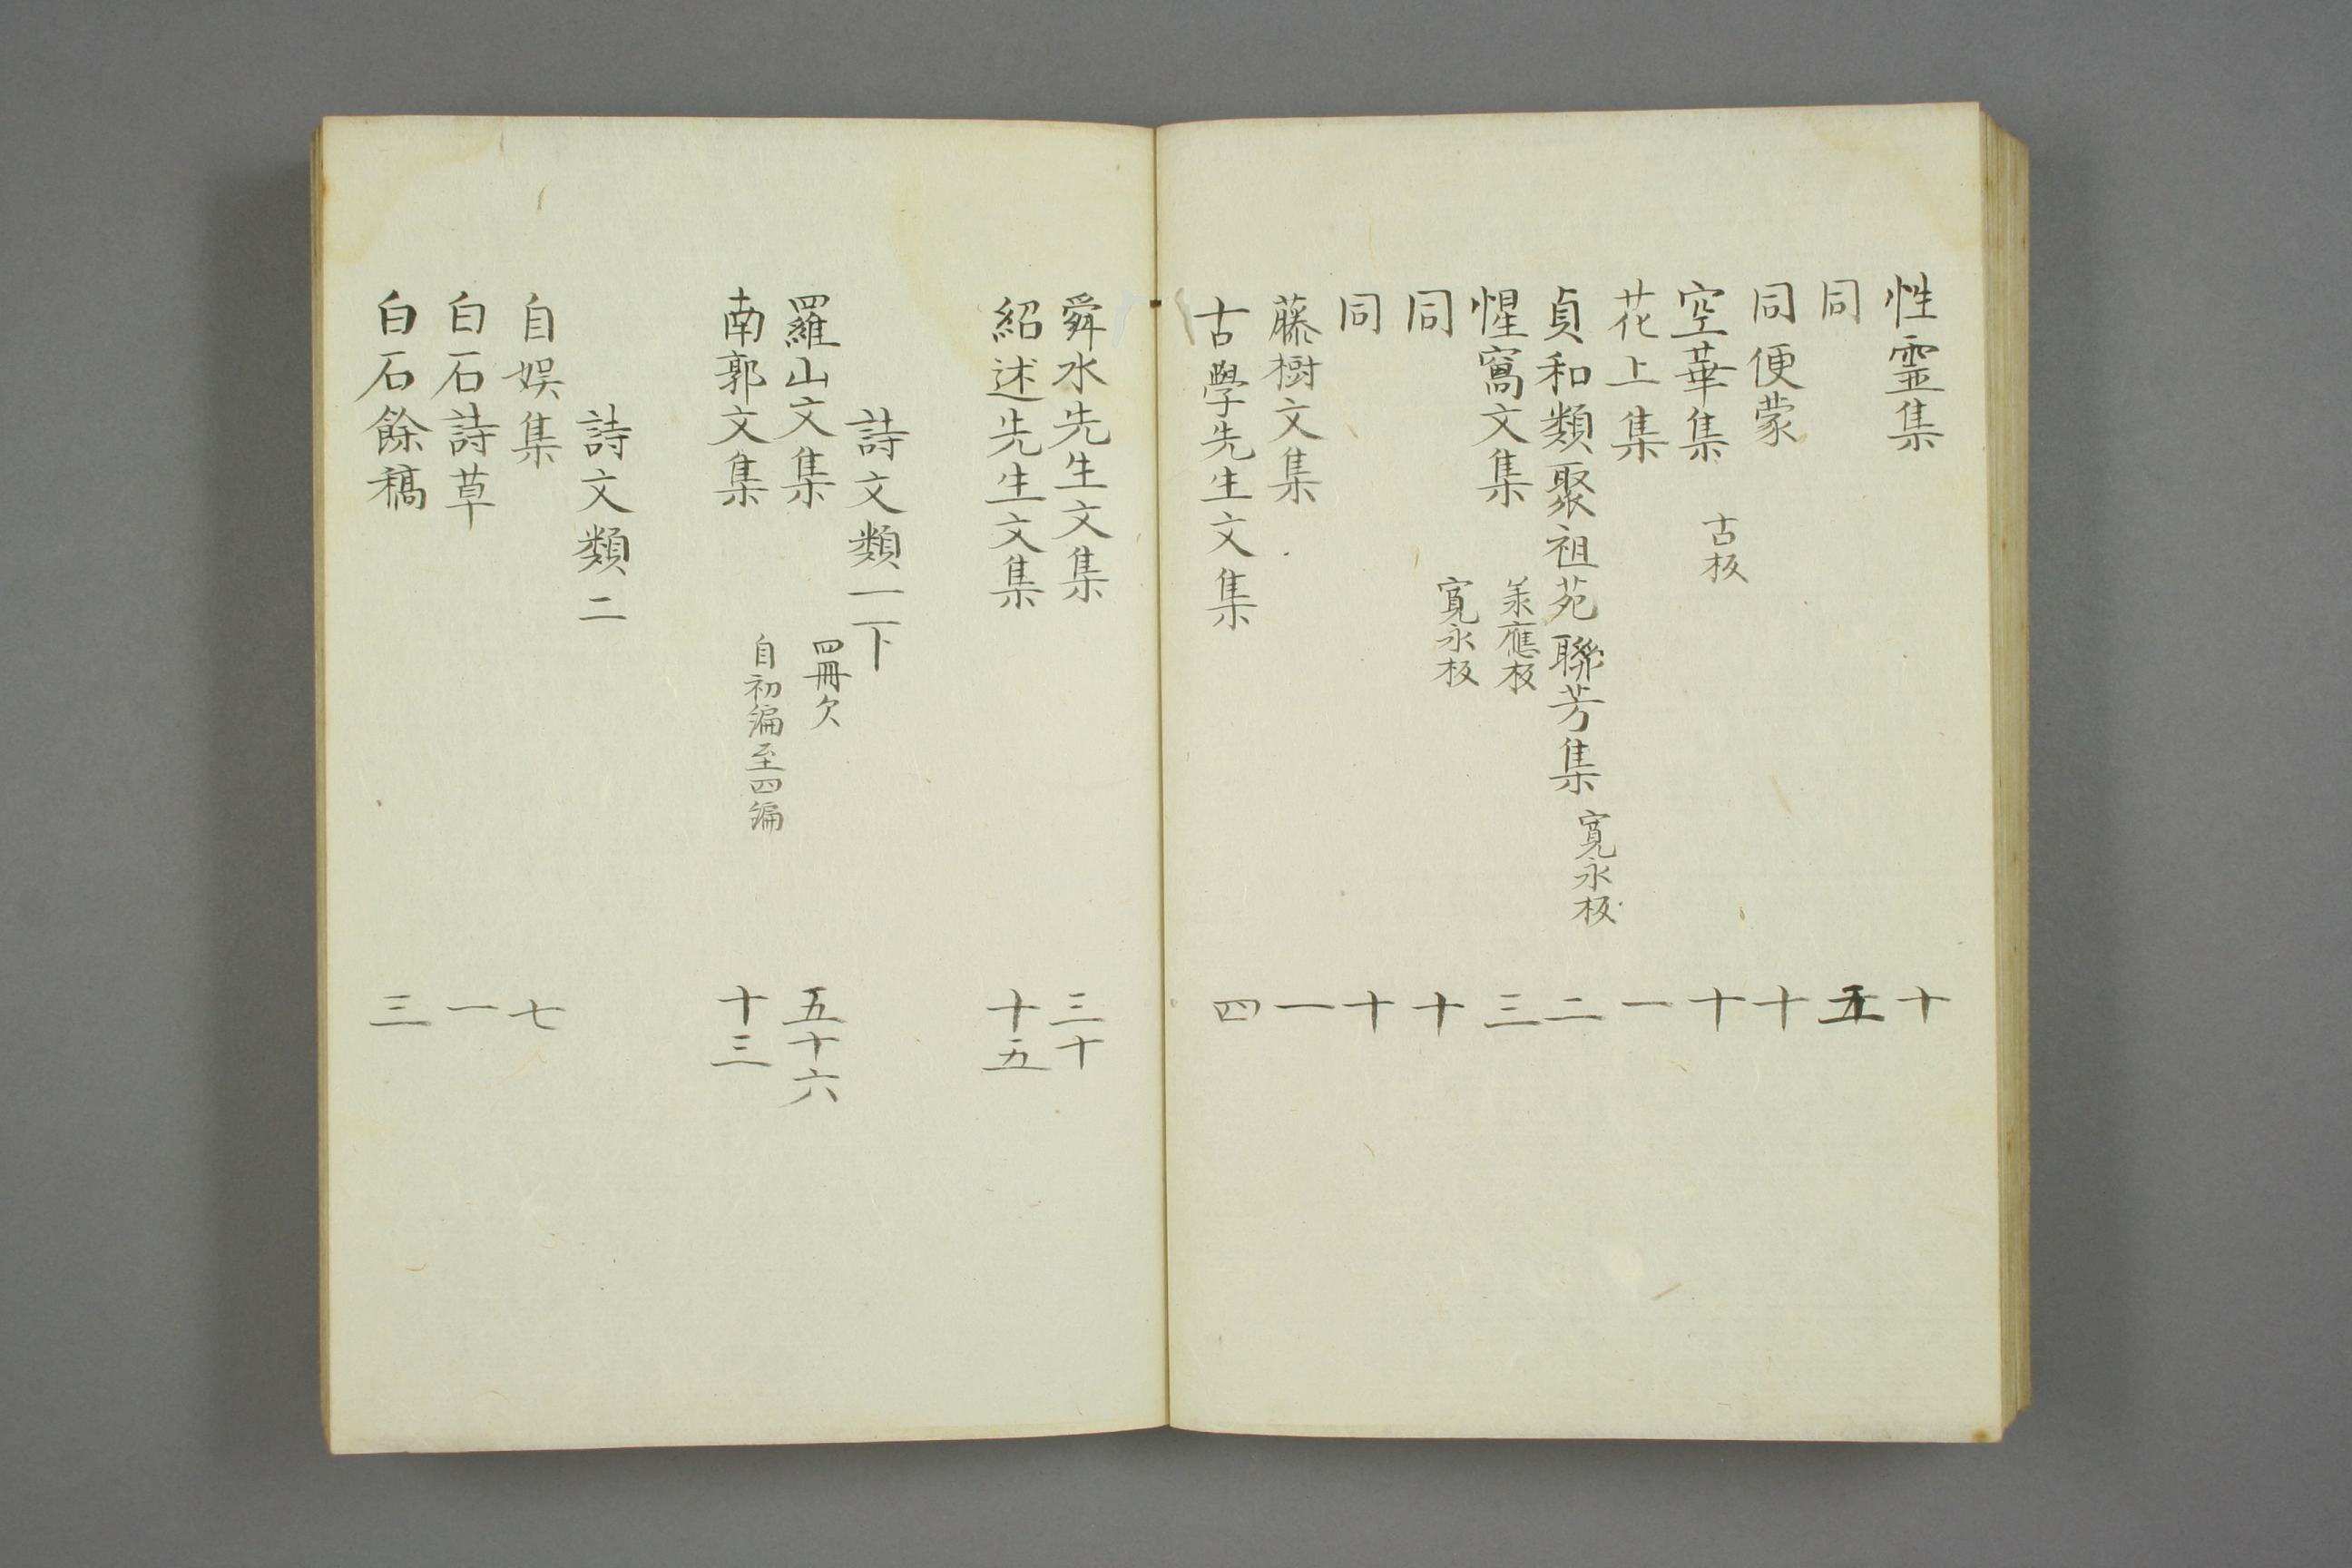 性霊集 十
同 五
同便蒙 十
空華集 古板 十
花上集 一
貞和類聚祖苑聯芳集 寛永板 二
惺窩文集 承應板 三
同 寛永板 十
同 十
藤樹文集 一
古學先生文集 四
舜水先生文集 三十
紹述先生文集 十五
詩文類一下
羅山文集 四冊欠 五十六
南郭文集 自初編至四編 十三
詩文類二
自娯集 七
白石詩草 一
白石餘稿 三